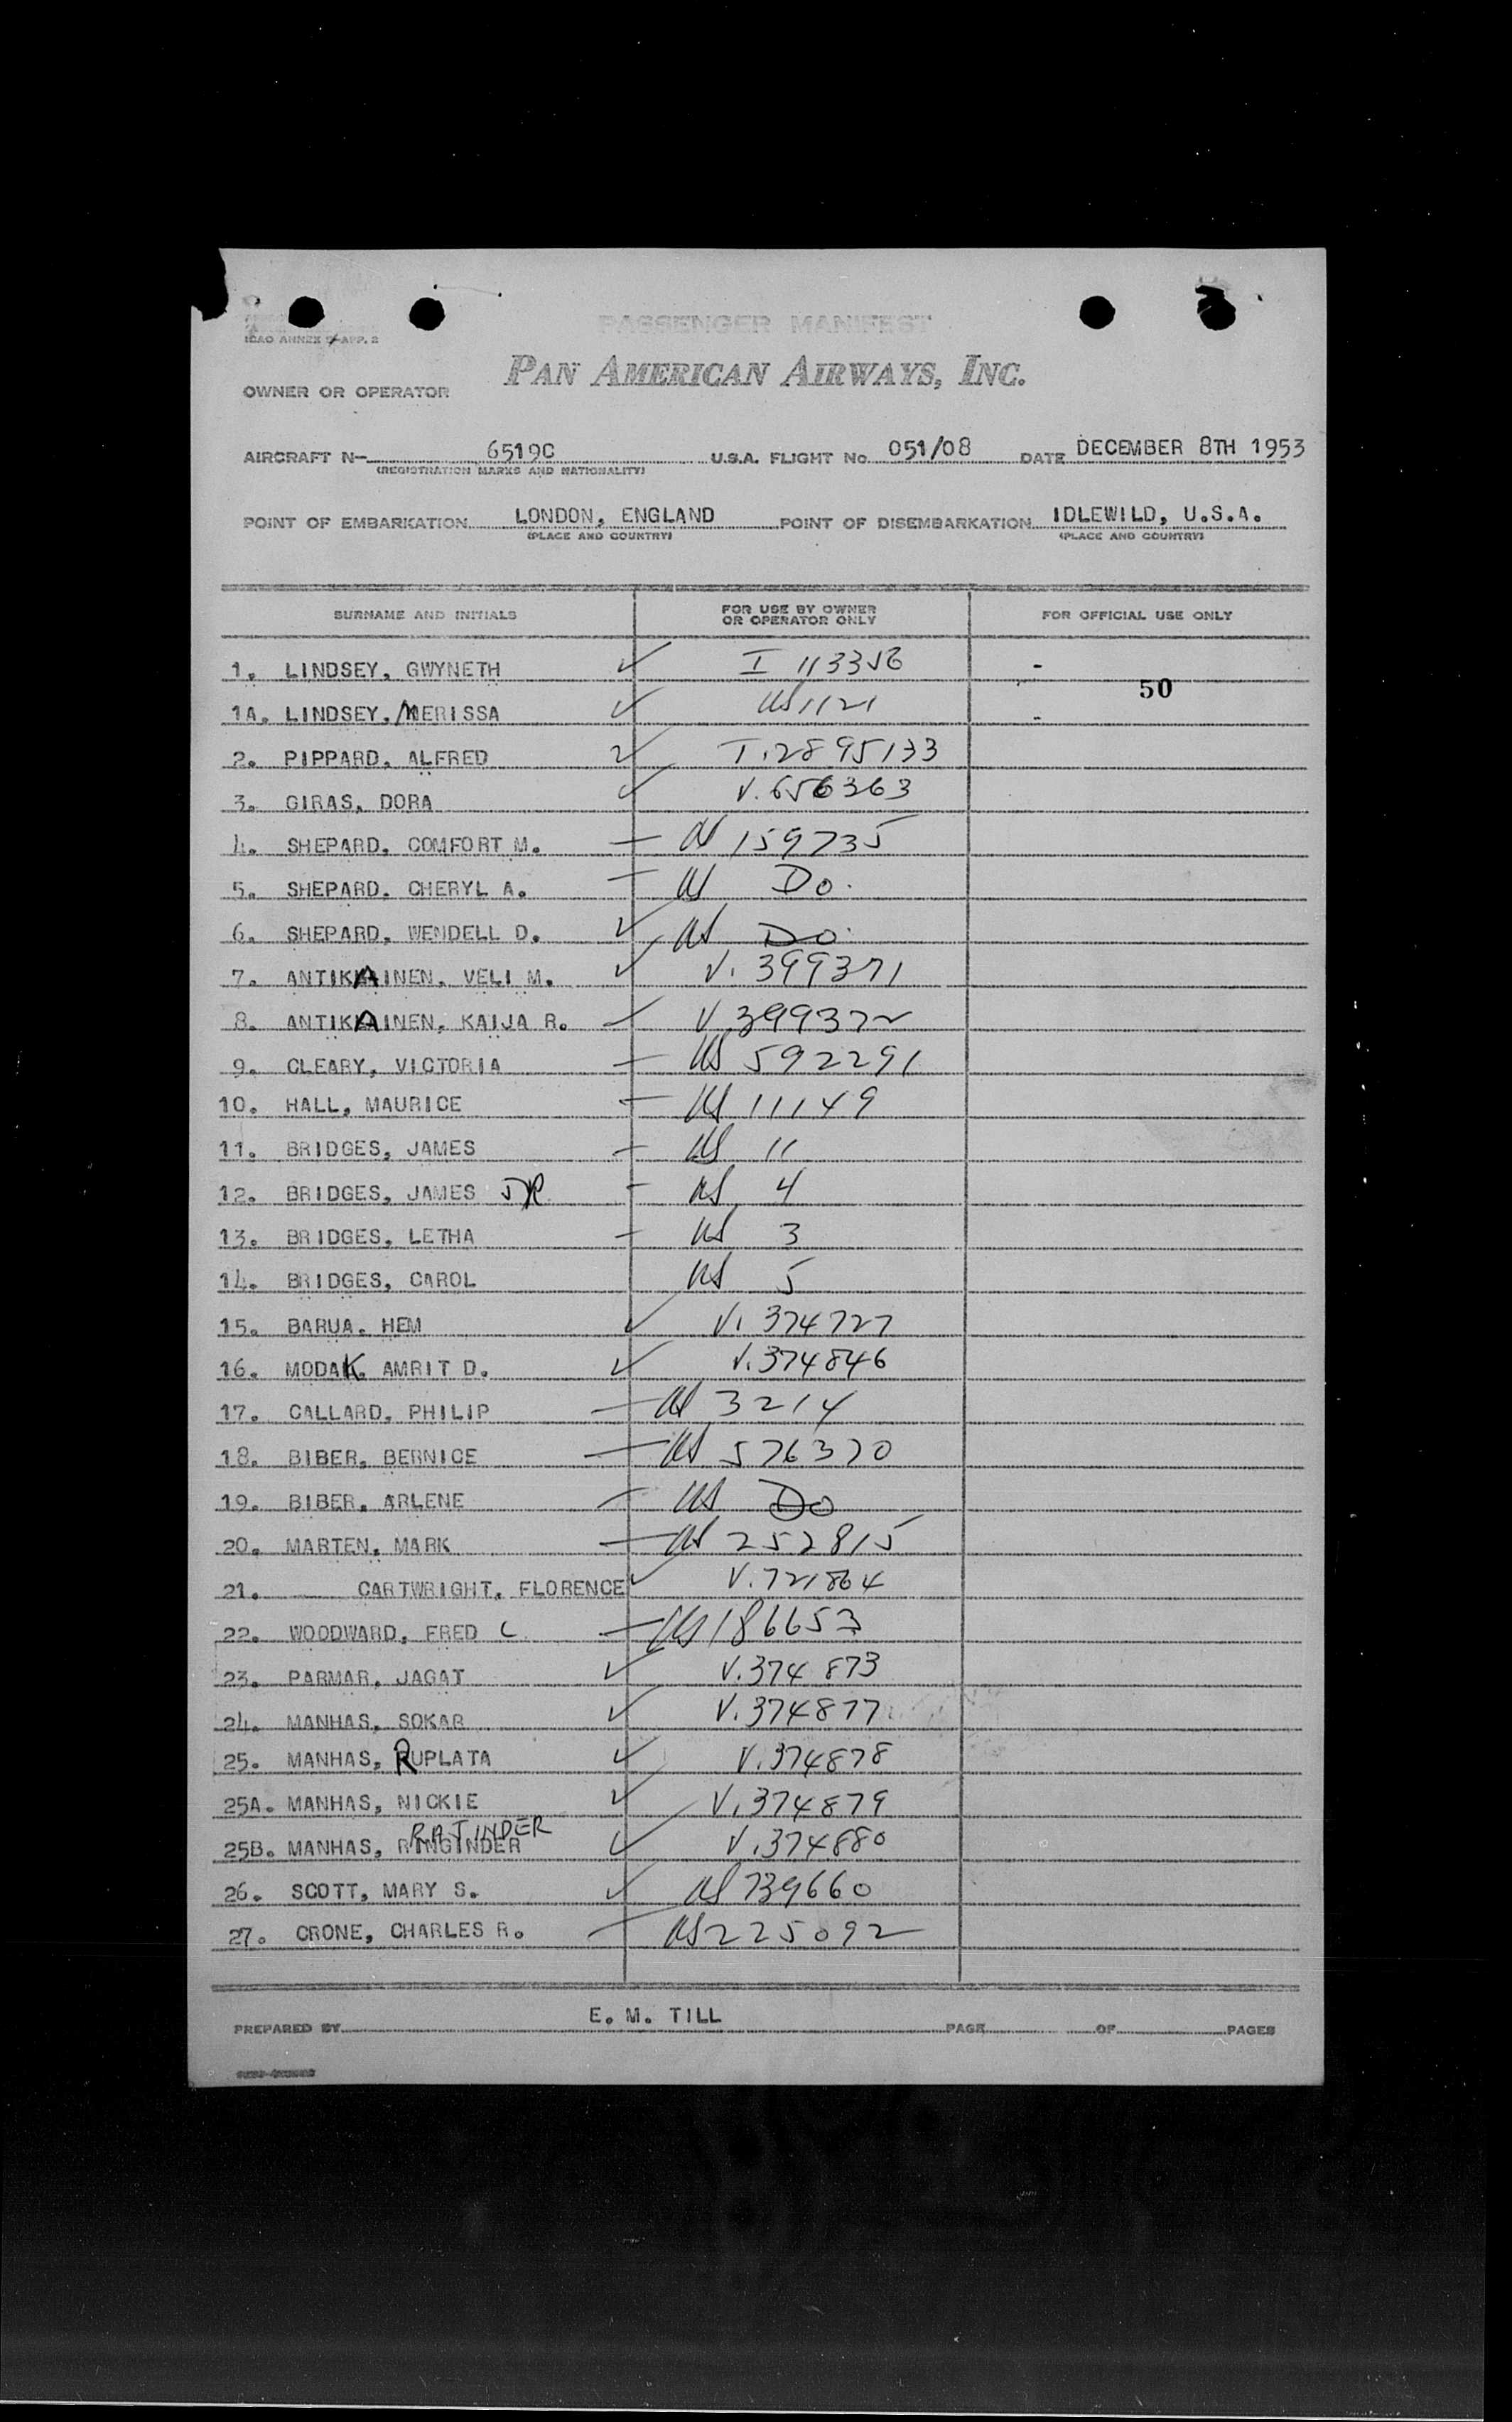 PASSENGER MANIFEST
ICAO ANNEX 9-APP. 2
PAN AMERICAN AIRWAYS, INC.
OWNER OR OPERATOR
AIRCRAFT N- 6519C U.S.A. FLIGHT No 051/08 DATE DECEMBER 8TH 1953
(REGISTRATION MARKS AND NATIONALITY)
POINT OF EMBARKATION LONDON, ENGLAND POINT OF DISEMBARKATION IDLEWILD, U.S.A.
(PLACE AND COUNTRY) (PLACE AND COUNTRY)
SURNAME AND INITIALS FOR USE BY OWNER OR OPERATOR ONLY FOR OFFICIAL USE ONLY
1. LINDSEY, GWYNETH ✓ I 113356 -
50
1A. LINDSEY, MERISSA ✓ US 1121 -
2. PIPPARD, ALFRED ✓ T.2895133
3. GIRAS, DORA ✓ V.656363
4. SHEPARD, COMFORT M. — US 159735
5. SHEPARD, CHERYL A. — US Do.
6. SHEPARD, WENDELL D. ✓ US Do.
7. ANTIKAINEN, VELI M. ✓ V. 399371
8. ANTIKAINEN, KAIJA R. ✓ V 399372
9. CLEARY, VICTORIA — US 592291
10. HALL, MAURICE — US 11149
11. BRIDGES, JAMES — US 11
12. BRIDGES, JAMES JR — US 4
13. BRIDGES, LETHA — US 3
14. BRIDGES, CAROL US 5
15. BARUA, HEM ✓ V. 374727
16. MODAK, AMRIT D. ✓ V.374846
17. CALLARD, PHILIP — US 3214
18. BIBER, BERNICE — US 576370
19. BIBER, ARLENE — US Do
20. MARTEN, MARK — US 252815
21. CARTWRIGHT, FLORENCE ✓ V.721864
22. WOODWARD, FRED C — US 186653
23. PARMAR, JAGAT ✓ V.374873
24. MANHAS, SOKAR ✓ V.374877
25. MANHAS, RUPLATA ✓ V.374878
25A. MANHAS, NICKIE ✓ V.374879
RATINDER
25B. MANHAS, RINGINDER ✓ V.374880
26. SCOTT, MARY S. ✓ US 739660
27. CRONE, CHARLES R. — US 225092
PREPARED BY E. M. TILL PAGE OF PAGES